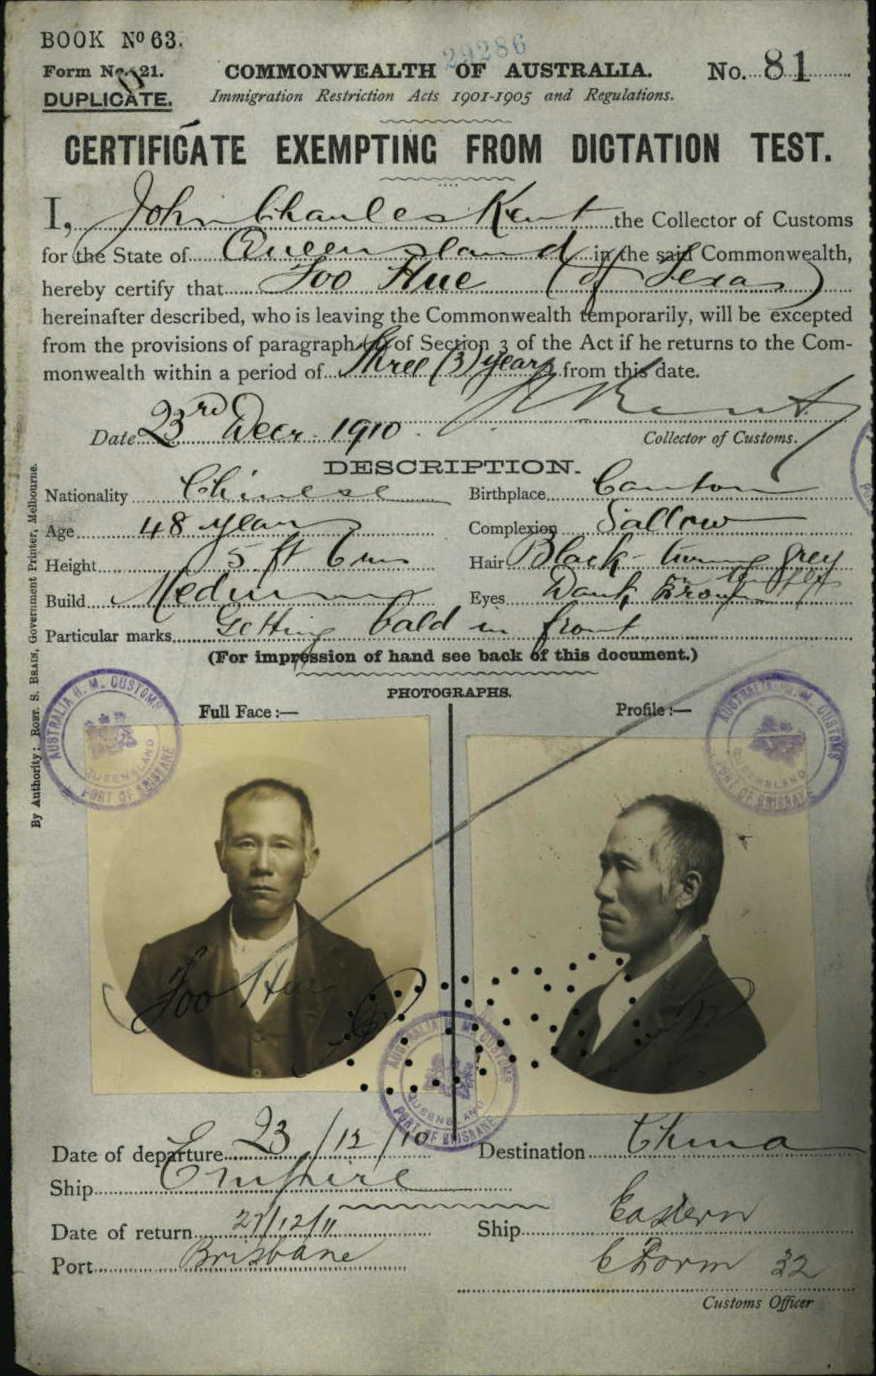 BOOK Nº 63.
29286
Form No. 21.
COMMONWEALTH OF AUSTRALIA.
No. 81
DUPLICATE.
Immigration Restriction Acts 1901-1905 and Regulations.
CERTIFICATE EXEMPTING FROM DICTATION TEST.
I, John Charles Kent the Collector of Customs
for the State of Queensland in the said Commonwealth,
hereby certify that Foo Hue (of Texas)
hereinafter described, who is leaving the Commonwealth temporarily, will be excepted
from the provisions of paragraph of Section 3 of the Act if he returns to the Com-
monwealth within a period of Three (3) years from this date.
Date 23rd Decr. 1910
Kent
Collector of Customs.
DESCRIPTION.
Nationality Chinese
Birthplace Canton
Age 48 years
Complexion Sallow
Height 5 ft 6 ins
Hair Black - turning grey
Build Medium
Eyes Dark Brown
Particular marks Getting bald in front
(For impression of hand see back of this document.)
PHOTOGRAPHS.
Full Face:—
Profile:—
AUSTRALIA H. M. CUSTOMS
QUEENSLAND
PORT OF BRISBANE
AUSTRALIA H. M. CUSTOMS
QUEENSLAND
PORT OF BRISBANE
By Authority: ROBT. S. BRAIN, Government Printer, Melbourne.
Foo Hue
AUSTRALIA H. M. CUSTOMS
QUEENSLAND
PORT OF BRISBANE
Date of departure 23/12/10
Destination China
Ship Empire
Date of return 27/12/11
Ship Eastern
Port Brisbane
32
Customs Officer